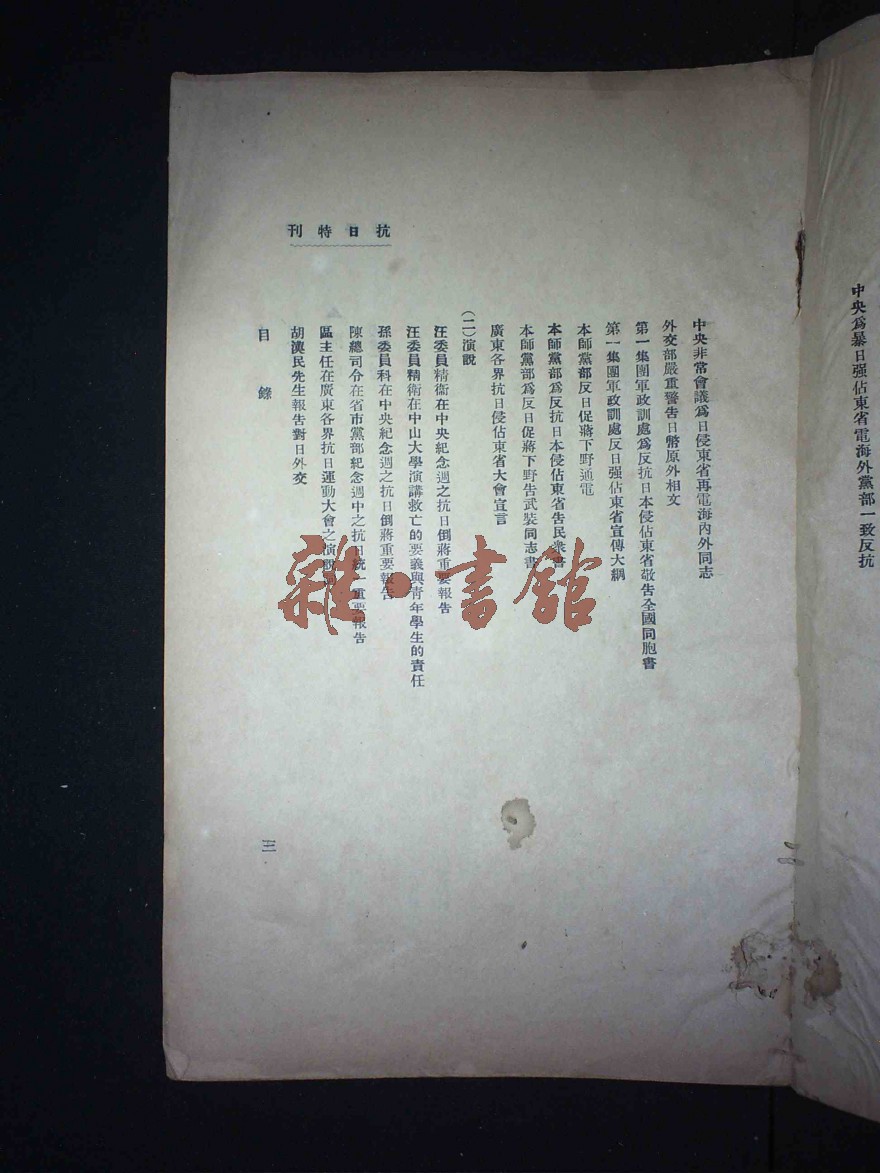 中央爲暴日强佔東省電海外黨部一致反抗
抗日特刊
中央非常會議爲日侵東省再電海內外同志
外交部嚴重警告日幣原外相文
第一集團軍政訓處爲反抗日本侵佔東省敬告全國同胞書
第一集團軍政訓處反日强佔東省宣傳大綱
本師黨部反日促蔣下野通電
本師黨部爲反抗日本侵佔東省告民衆書
本師黨部爲反日促蔣下野告武裝同志書
廣東各界抗日侵佔東省大會宣言
(二)演說
汪委員精衞在中央紀念週之抗日倒蔣重要報告
汪委員精衞在中山大學演講救亡的要義與靑年學生的責任
孫委員科在中央紀念週之抗日倒蔣重要報告
陳總司令在省市黨部紀念週中之抗日統一重要報告
區主任在廣東各界抗日運動大會之演說
胡漢民先生報告對日外交
目錄
三
雜·書館